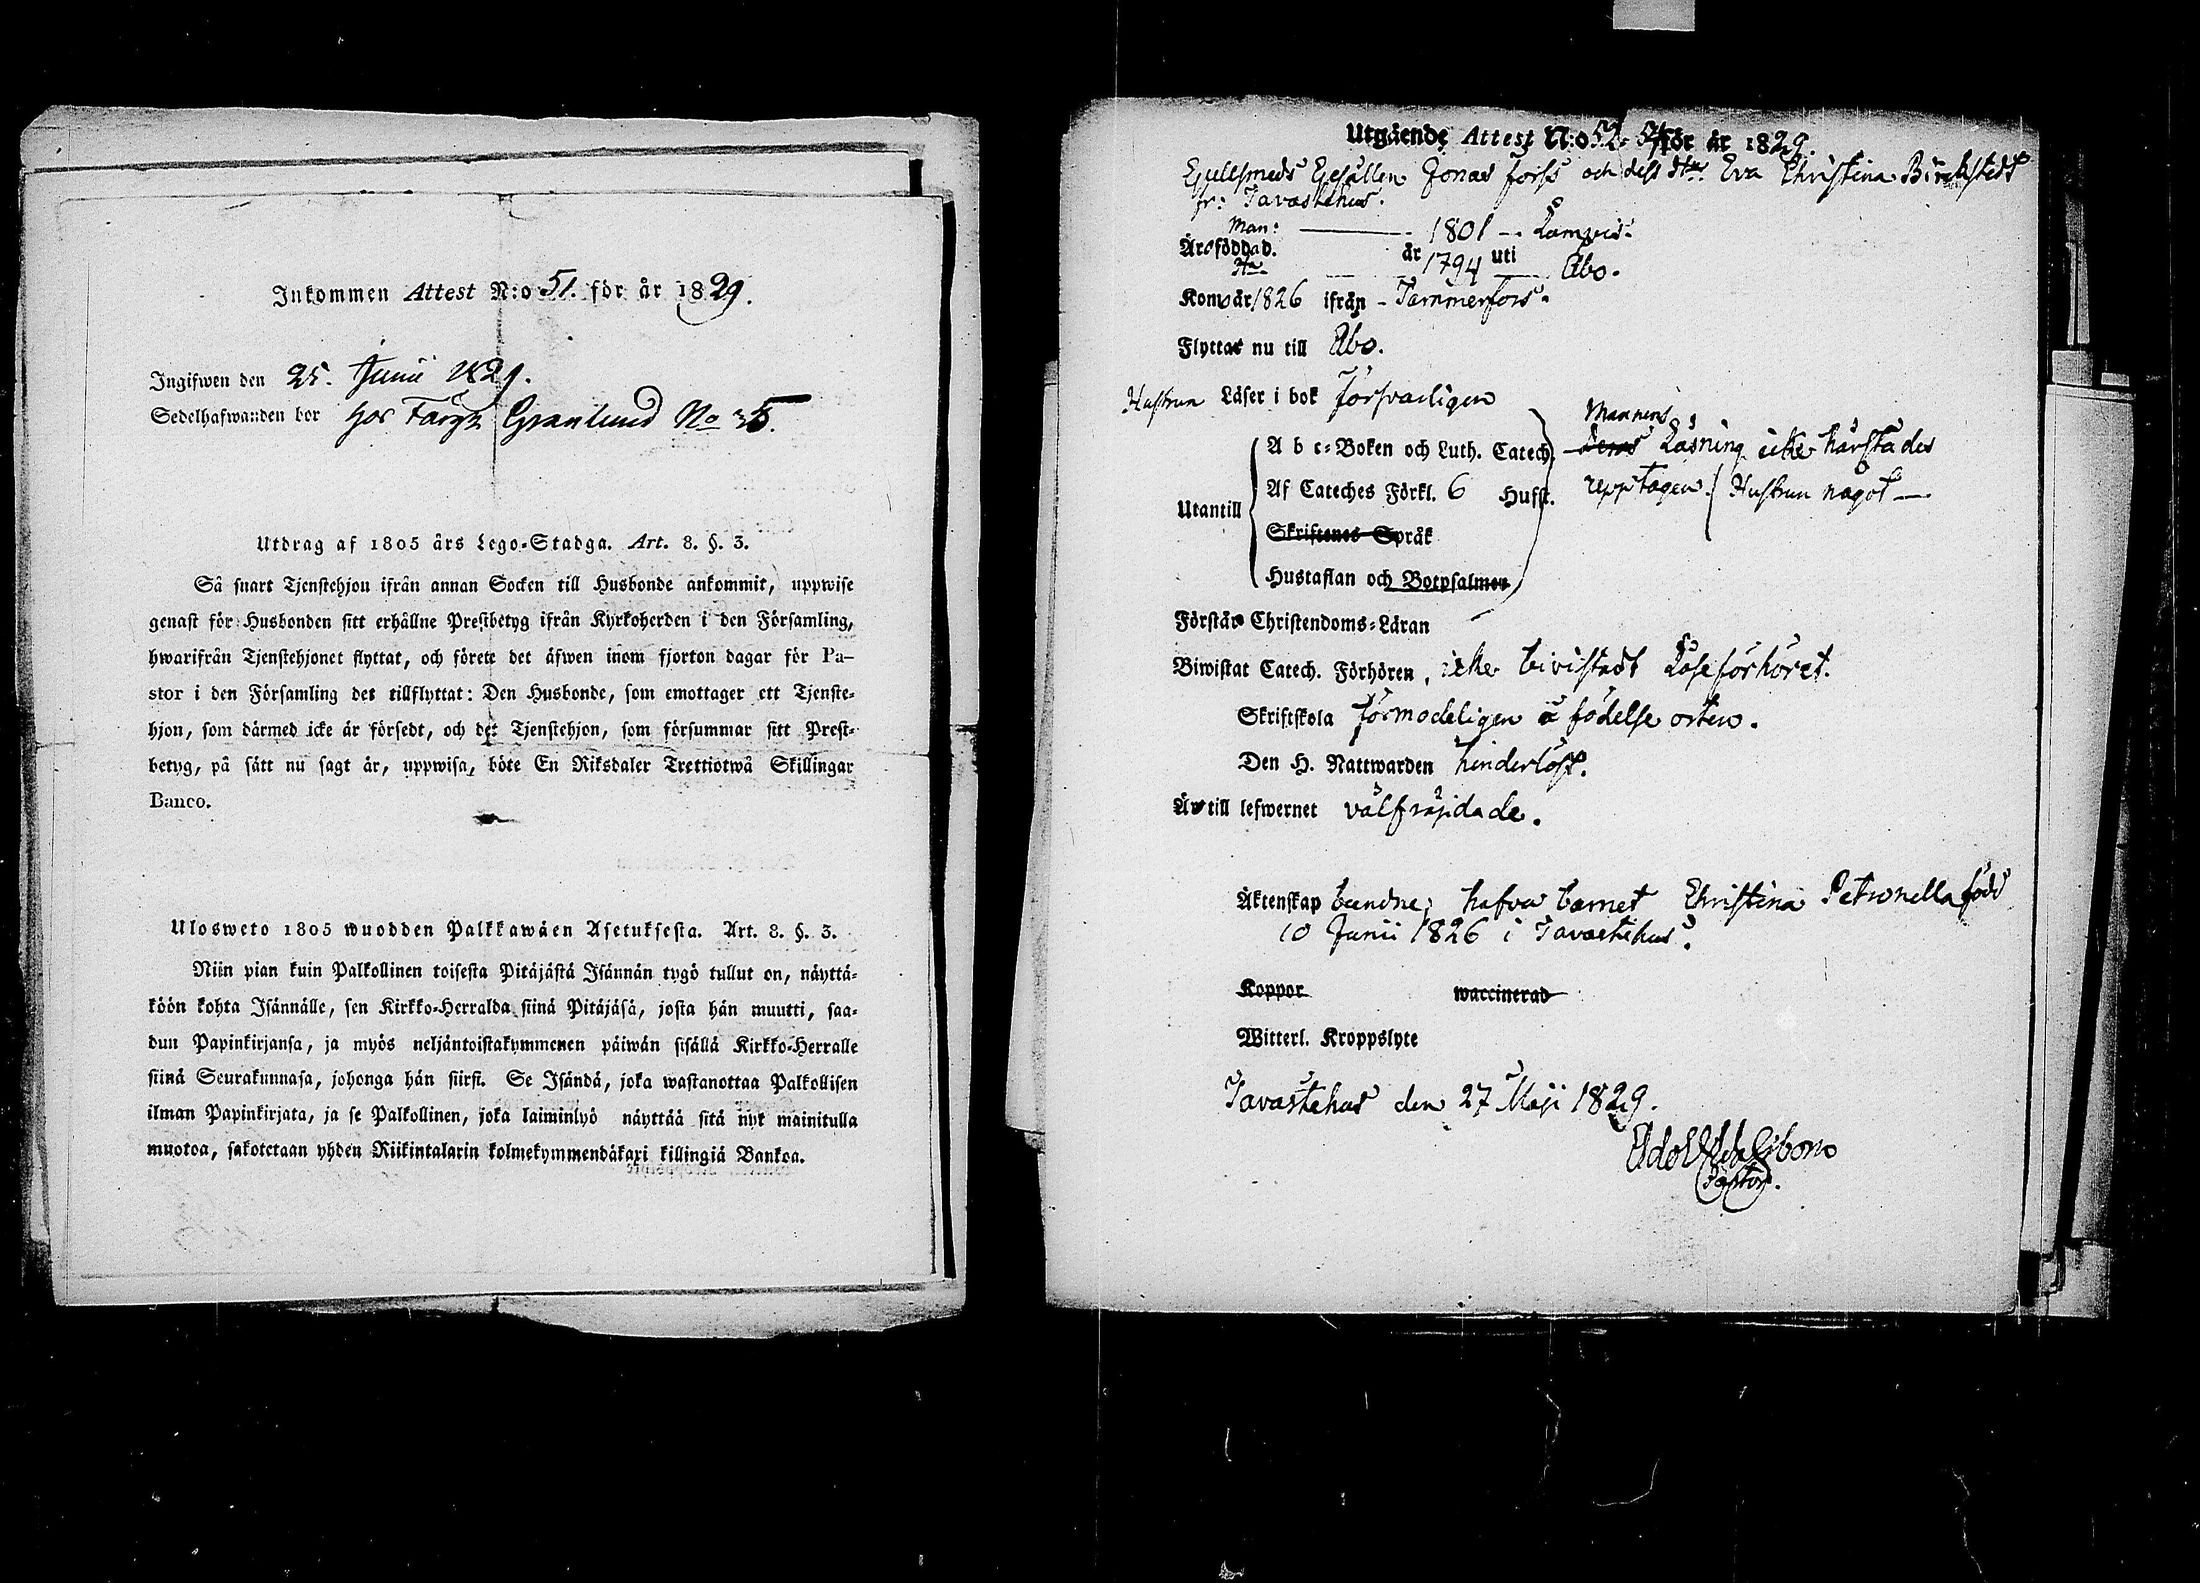 Inkommen Attest N:o 51. för år 1829.
Ingifwen den 25. Junii 1829.
Sedelhafwanden bor hos Färg: Granlund No 35.
Utdrag af 1805 års Lego-Stadga. Art. 8. §. 3.
Så snart Tjenstehjon ifrån annan Socken till Husbonde ankommit, uppwise
genast för Husbonden sitt erhållne Prestbetyg ifrån Kyrkoherden i den Församling,
hwarifrån Tjenstehjonet flyttat, och förete det äfwen inom fjorton dagar för Pa-
stor i den Församling det tillflyttat: Den Husbonde, som emottager ett Tjenste-
hjon, som därmed icke är försedt, och det Tjenstehjon, som försummar sitt Prest-
betyg, på sätt nu sagt är, uppwisa, böte En Riksdaler Trettiotwå Skillingar
Banco.
Ulosweto 1805 wuodden Palkkawäen Asetuksesta. Art. 8. §. 3.
Niin pian kuin Palkollinen toisesta Pitäjästä Isännän tygö tullut on, näyttä-
köön kohta Isännälle, sen Kirkko-Herralda siinä Pitäjäsä, josta hän muutti, saa-
dun Papinkirjansa, ja myös neljäntoistakymmenen päiwän sisällä Kirkko-Herralle
siinä Seurakunnasa, johonga hän siirsi. Se Isändä, joka wastanottaa Palkollisen
ilman Papinkirjata, ja se Palkollinen, joka laiminlyö näyttää sitä nyt mainitulla
muotoa, sakotetaan yhden Riikintalarin kolmekymmendäkaxi killingiä Bankoa.
Utgående Attest N:o 52 för år 1829.
Gesällen Jonas Forss och dess Hu. Eva Christina Birckstedt
fr: Tavastehus.
Man: 1801 - Lampis.
Äro födda d. år uti
Hu. 1794 Åbo.
Kom år 1826 ifrån - Tammerfors.
Flytta nu till Åbo.
Hustrun Läser i bok försvarligen
Mannens
A b c-Boken och Luth. Catech. deras Läsning icke härstädes
Af Cateches Förkl. 6 Hufst. upptagen. Hustrun något
Utantill
Skriftenes Språk
Hustaflan och Botpsalmen
Förstår Christendoms-Läran
Biwistat Catech. Förhören, icke bivistadt Läseförhöret.
Skriftskola förmodeligen å födelse orten.
Den H. Nattwarden hinderlöst.
Är till lefwernet välfräjdade.
Äktenskap bundne; hafva barnet Christina Petronella född
10 Junii 1826 i Tavastehus.
Koppor waccinerad
Witterl. Kroppslyte
Tavastehus den 27 Maji 1829.
Pastor.